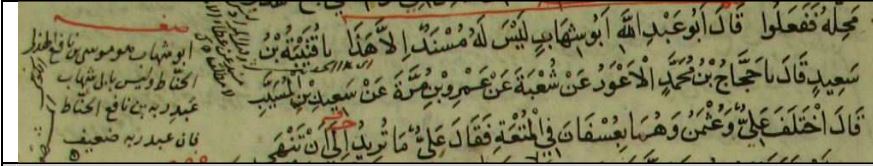 محله ففعلوا قال ابو عبد الله ابو شهاب ليس له مسند الا هذا با قتيبة بن
سعيد قال با حجاج بن محمد الاعور عن شعبة عن عمرو بن مرة عن سعيد بن المسيب
قال اختلف علي وعثمن وهما بعسفان في المتعة فقال علي ما تريد الى ان تنهى
ابو شهاب هو موسى بن نافع
الحناط وليس بابي شهاب
عبد ربه بن نافع الحناط
فان عبد ربه ضعيف